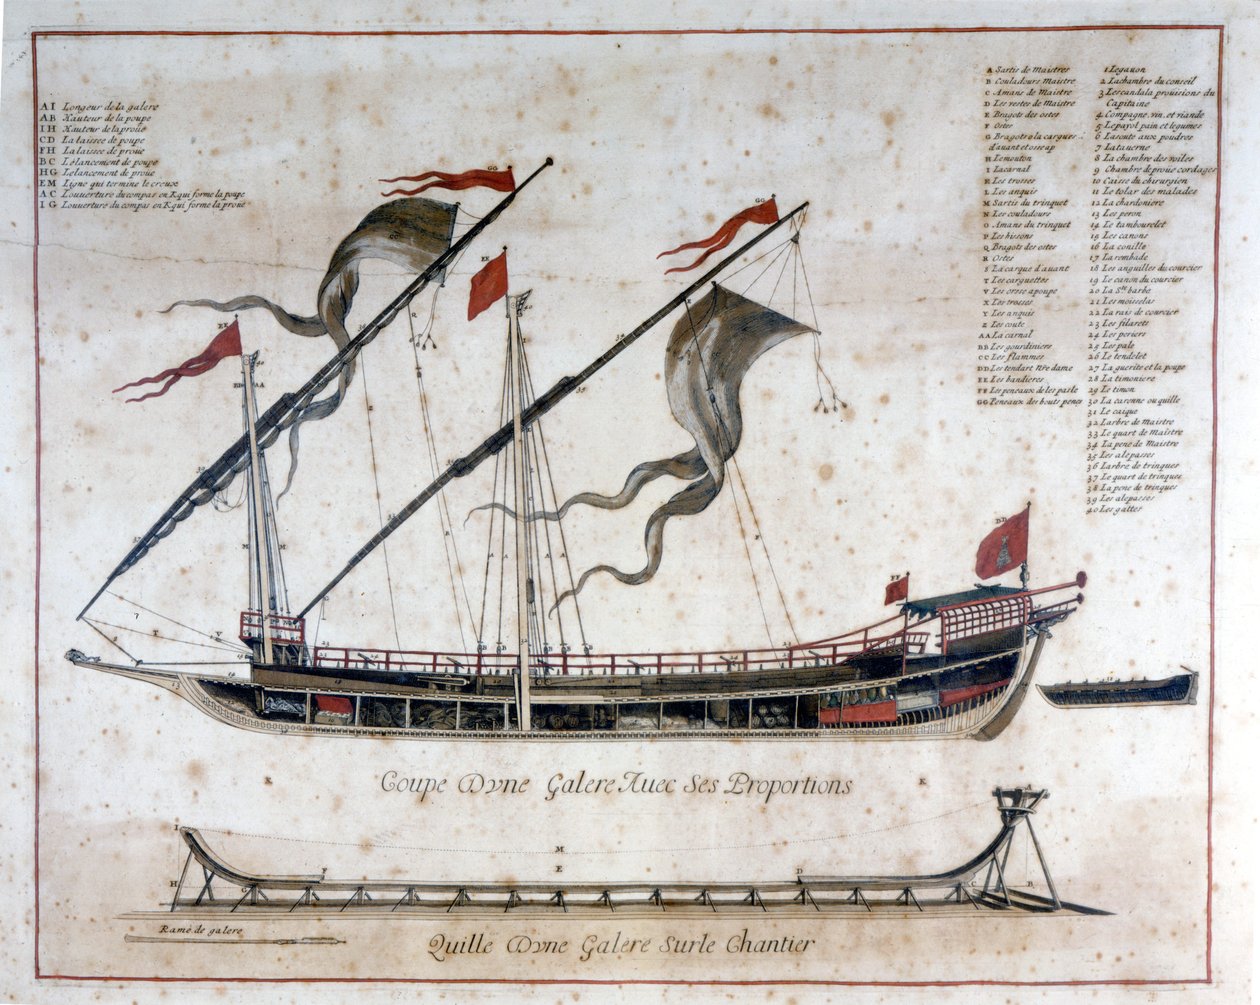 AI Longeur de la galere
AB Hauteur de la poupe
IH Hauteur de la proüe
CD La laissee de poupe
FH La laissee de proüe
BC Lélancement de poupe
HG Lelancement de proüe
EM Ligne qui termine le creux
AC Louuerture du compas en K qui forme la poupe
IG Louuerture du compas en K qui forme la proüe
A Sartis de Maistres
B Couladours Maistre
C Amans de Maistre
D Les restes de Maistre
E Bragots des ostes
F Ostes
G Bragots a la cargues
dauant et osse ap
H Lemouton
I Lacarnal
K Les trosses
L Les anquis
M Sartis du trinquet
N Les couladours
O Amans du trinquet
P Les hissons
Q Bragots des ostes
R Ostes
S La carque d'auant
T Les carguettes
V Les orses apoupe
X Les trosses
Y Les anquis
Z Les coute
AA La carnal
BB Les gourdiniers
CC Les flammes
DD Les tendart Nre dame
EE Les bandieres
FF Les peneaux de les parle
GG Peneaux des bouts penes
1 Legauon
2 Lachambre du conseil
3 Lescandala prouisions du
Capitaine
4 Compagne, vin, et viande
5 Lepayol pain et legumes
6 Lasoute aux poudres
7 Latauerne
8 La chambre des voiles
9 Chambre de proüe cordages
10 Caisse du chirurgien
11 Le tolar des malades
12 La chardoniere
13 Les peron
14 Le tambourelet
15 Les canons
16 La conille
17 La rombade
18 Les anguilles du courcier
19 Le canon du courcier
20 La Ste barbe
21 Les moisselas
22 La rais de courcier
23 Les filarets
24 Les periers
25 Les pale
26 Le tendelet
27 La guerite et la poupe
28 La timoniere
29 Le timon
30 La carenne ou quille
31 Le caique
32 Larbre de Maistre
33 Le quart de Maistre
34 La pene de Maistre
35 Les alepasses
36 Larbre de trinques
37 Le quart de trinques
38 La pene de trinques
39 Les alepasses
40 Les gatter
Coupe Dvne Galere Auec Ses Proportions
Rame de galere
Quille Dvne Galere Sur le Chantier